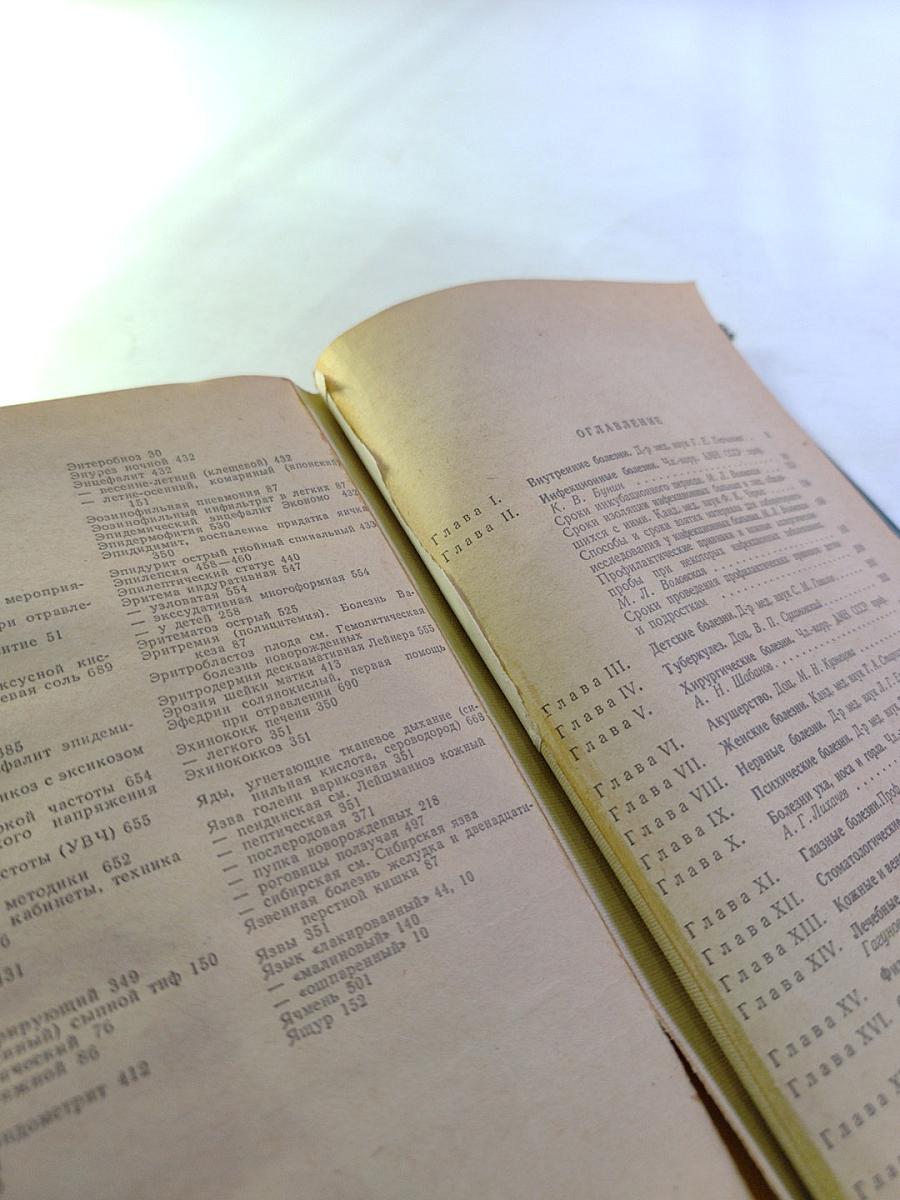 мероприя-
ри отравле-
итие 51
ксусной кис-
евая соль 689
385
фалит эпидеми-
икоз с эксикозом
окой частоты 654
кого напряжения
стоты (УВЧ) 655
методики 652
кабинеты, техника
6
431
рирующий 349
инный) сыпной тиф 150
ический 76
яжной 86
ндометрит 412
Энтеробиоз 30
Энурез ночной 432
Энцефалит 432
— весенне-летний (клещевой) 432
— летне-осенний, комариный (японский)
151
Эозинофильная пневмония 87
Эозинофильный инфильтрат в легких 87
Эпидемический энцефалит Экономо 432
Эпидермофития 530
Эпидидимит, воспаление придатка яичка
350
Эпидурит острый гнойный спинальный 433
Эпилепсия 458—460
Эпилептический статус 440
Эритема индуративная 547
— узловатая 554
— экссудативная многоформная 554
— у детей 258
Эритематоз острый 525
Эритремия (полицитемия). Болезнь Ва-
кеза 87
Эритробластоз плода см. Гемолитическая
болезнь новорожденных
Эритродермия десквамативная Лейнера 555
Эрозия шейки матки 413
Эфедрин солянокислый, первая помощь
при отравлении 690
Эхинококк печени 350
— легкого 351
Эхинококкоз 351
Яды, угнетающие тканевое дыхание (си-
нильная кислота, сероводород) 668
Язва голени варикозная 351
— пендинская см. Лейшманиоз кожный
— пептическая 351
— послеродовая 371
— пупка новорожденных 218
— роговицы ползучая 497
— сибирская см. Сибирская язва
Язвенная болезнь желудка и двенадцати-
перстной кишки 87
Язвы 351
Язык «лакированный» 44, 10
— «малиновый» 140
— «ошпаренный» 10
Ячмень 501
Ящур 152
ОГЛАВЛЕНИЕ
Глава I. Внутренние болезни. Д-р мед. наук Г. Е.
Глава II. Инфекционные болезни. Чл.-корр. АМН СССР проф.
К. В. Бунин
Сроки инкубационного периода. М. Л.
Сроки изоляции инфекционных больных и лиц,
шихся с ними. Канд. мед. наук
Способы и сроки взятия материала для
исследования у инфекционных больных.
Профилактические прививки и
пробы при некоторых инфекционных
М. Л.
Сроки проведения профилактических прививок детям
и подросткам
Глава III. Детские болезни. Д-р мед. наук С. М.
Глава IV. Туберкулез. Доц. В. П.
Глава V. Хирургические болезни. Чл.-корр. АМН СССР проф.
А. Н. Шабанов
Глава VI. Акушерство. Доц. М. Н. Кузнецова
Глава VII. Женские болезни. Канд. мед. наук Т. А.
Глава VIII. Нервные болезни. Д-р мед. наук Л. Г.
Глава IX. Психические болезни. Д-р мед.
Глава X. Болезни уха, носа и горла. Чл.-
А. Г. Лихачев
Глава XI. Глазные болезни. Проф.
Глава XII. Стоматологические
Глава XIII. Кожные и вен
Глава XIV. Лечебные
Глава XV. Физ
Глава XVI.
Глава X
Глав